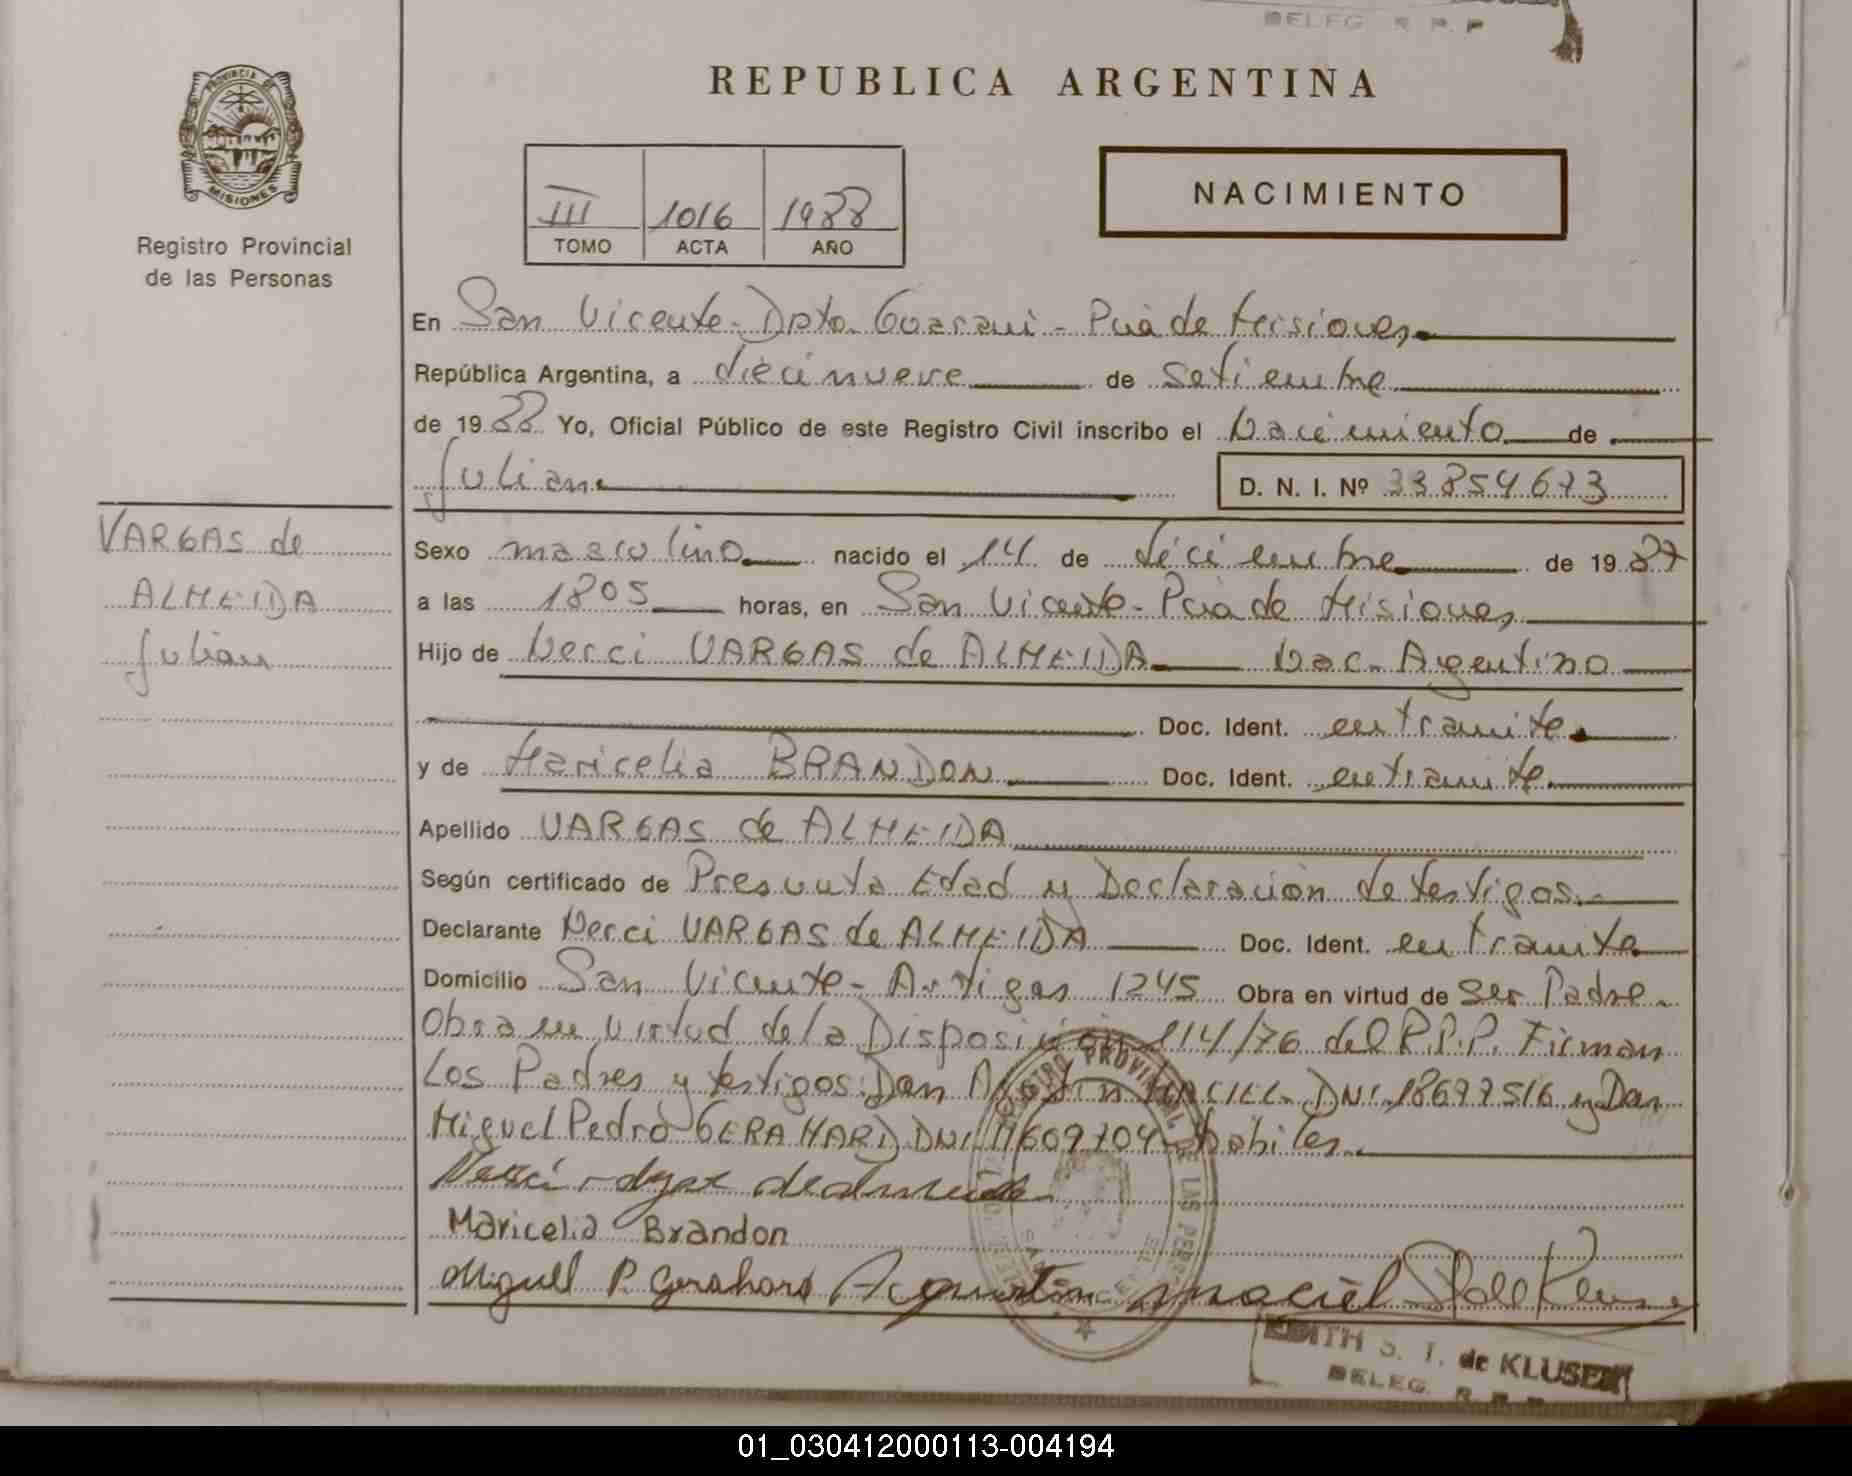 DELEG. R. P. P
REPUBLICA ARGENTINA
PROVINCIA DE
MISIONES
Registro Provincial
de las Personas
III 1016 1988
TOMO ACTA AÑO
NACIMIENTO
En San Vicente - Dpto. Guarani - Pcia de Misiones
República Argentina, a diecinueve de setiembre
de 1988 Yo, Oficial Público de este Registro Civil inscribo el Nacimiento de
Julian D. N. I. Nº 33854673
VARGAS de
ALMEIDA
Julian
Sexo masculino nacido el 14 de diciembre de 1987
a las 1805 horas, en San Vicente - Pcia de Misiones
Hijo de Nerci VARGAS de ALMEIDA Nac. Argentino
Doc. Ident. en tramite
y de Maricelia BRANDON Doc. Ident. en tramite
Apellido VARGAS de ALMEIDA
Según certificado de Presunta Edad y Declaración de testigos.-
Declarante Nerci VARGAS de ALMEIDA Doc. Ident. en tramite
Domicilio San Vicente - Artigas 1245 Obra en virtud de ser Padre.
Obra en virtud de la Disposición 114/76 del R.P.P. Firman
Los Padres y testigos: Don Agustin MACIEL DNI 18677516 y Don
Miguel Pedro GERAHARD DNI 11609704 habiles.
Maricelia Brandon
Miguel P. Gerahard Agustin maciel
REGISTRO PROVINCIAL DE LAS PERS
EDITH S. T. de KLUSER
DELEG. R. P. P.
01_030412000113-004194